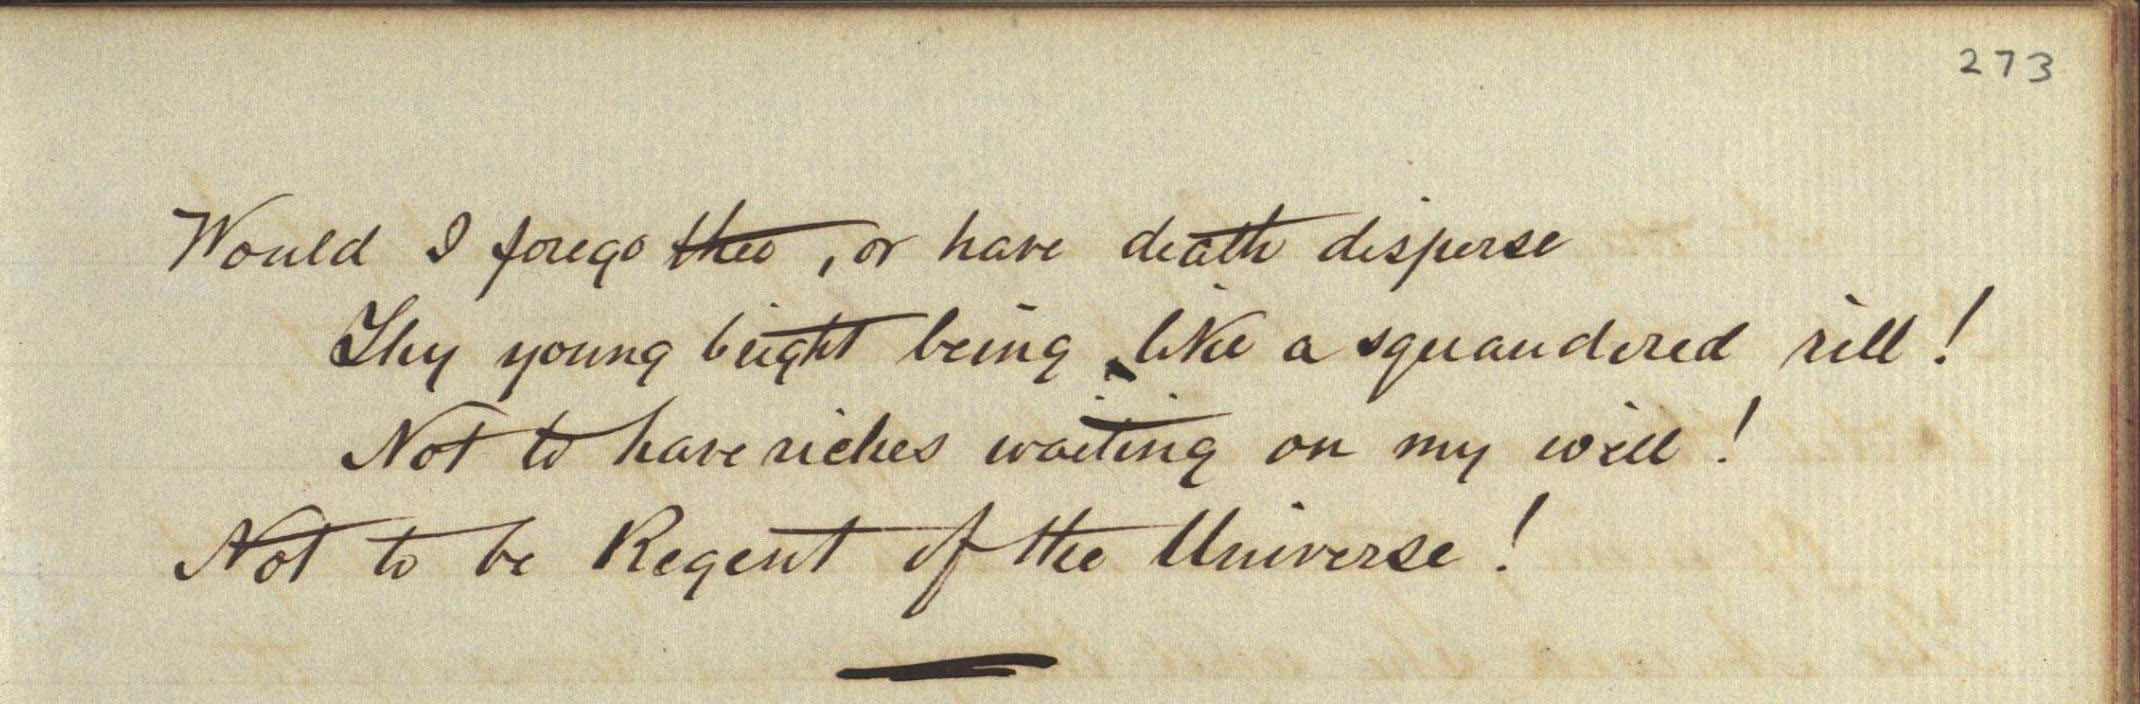 273
Would I forego thee, or have death disperse
Thy young bright being like a squandered rill!
Not to have riches waiting on my will!
Not to be Regent of the Universe!